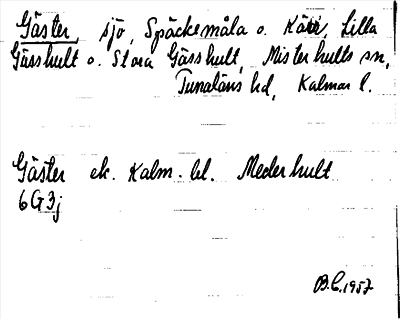 Gäster, sjö, Späckemåla o. Kärr, Lilla
Gässhult o. Stora Gässhult, Misterhults sn,
Tunaläns hd, Kalmar l.
Gäster ek. Kalm. bl. Mederhult
6G3j
B.C. 1957